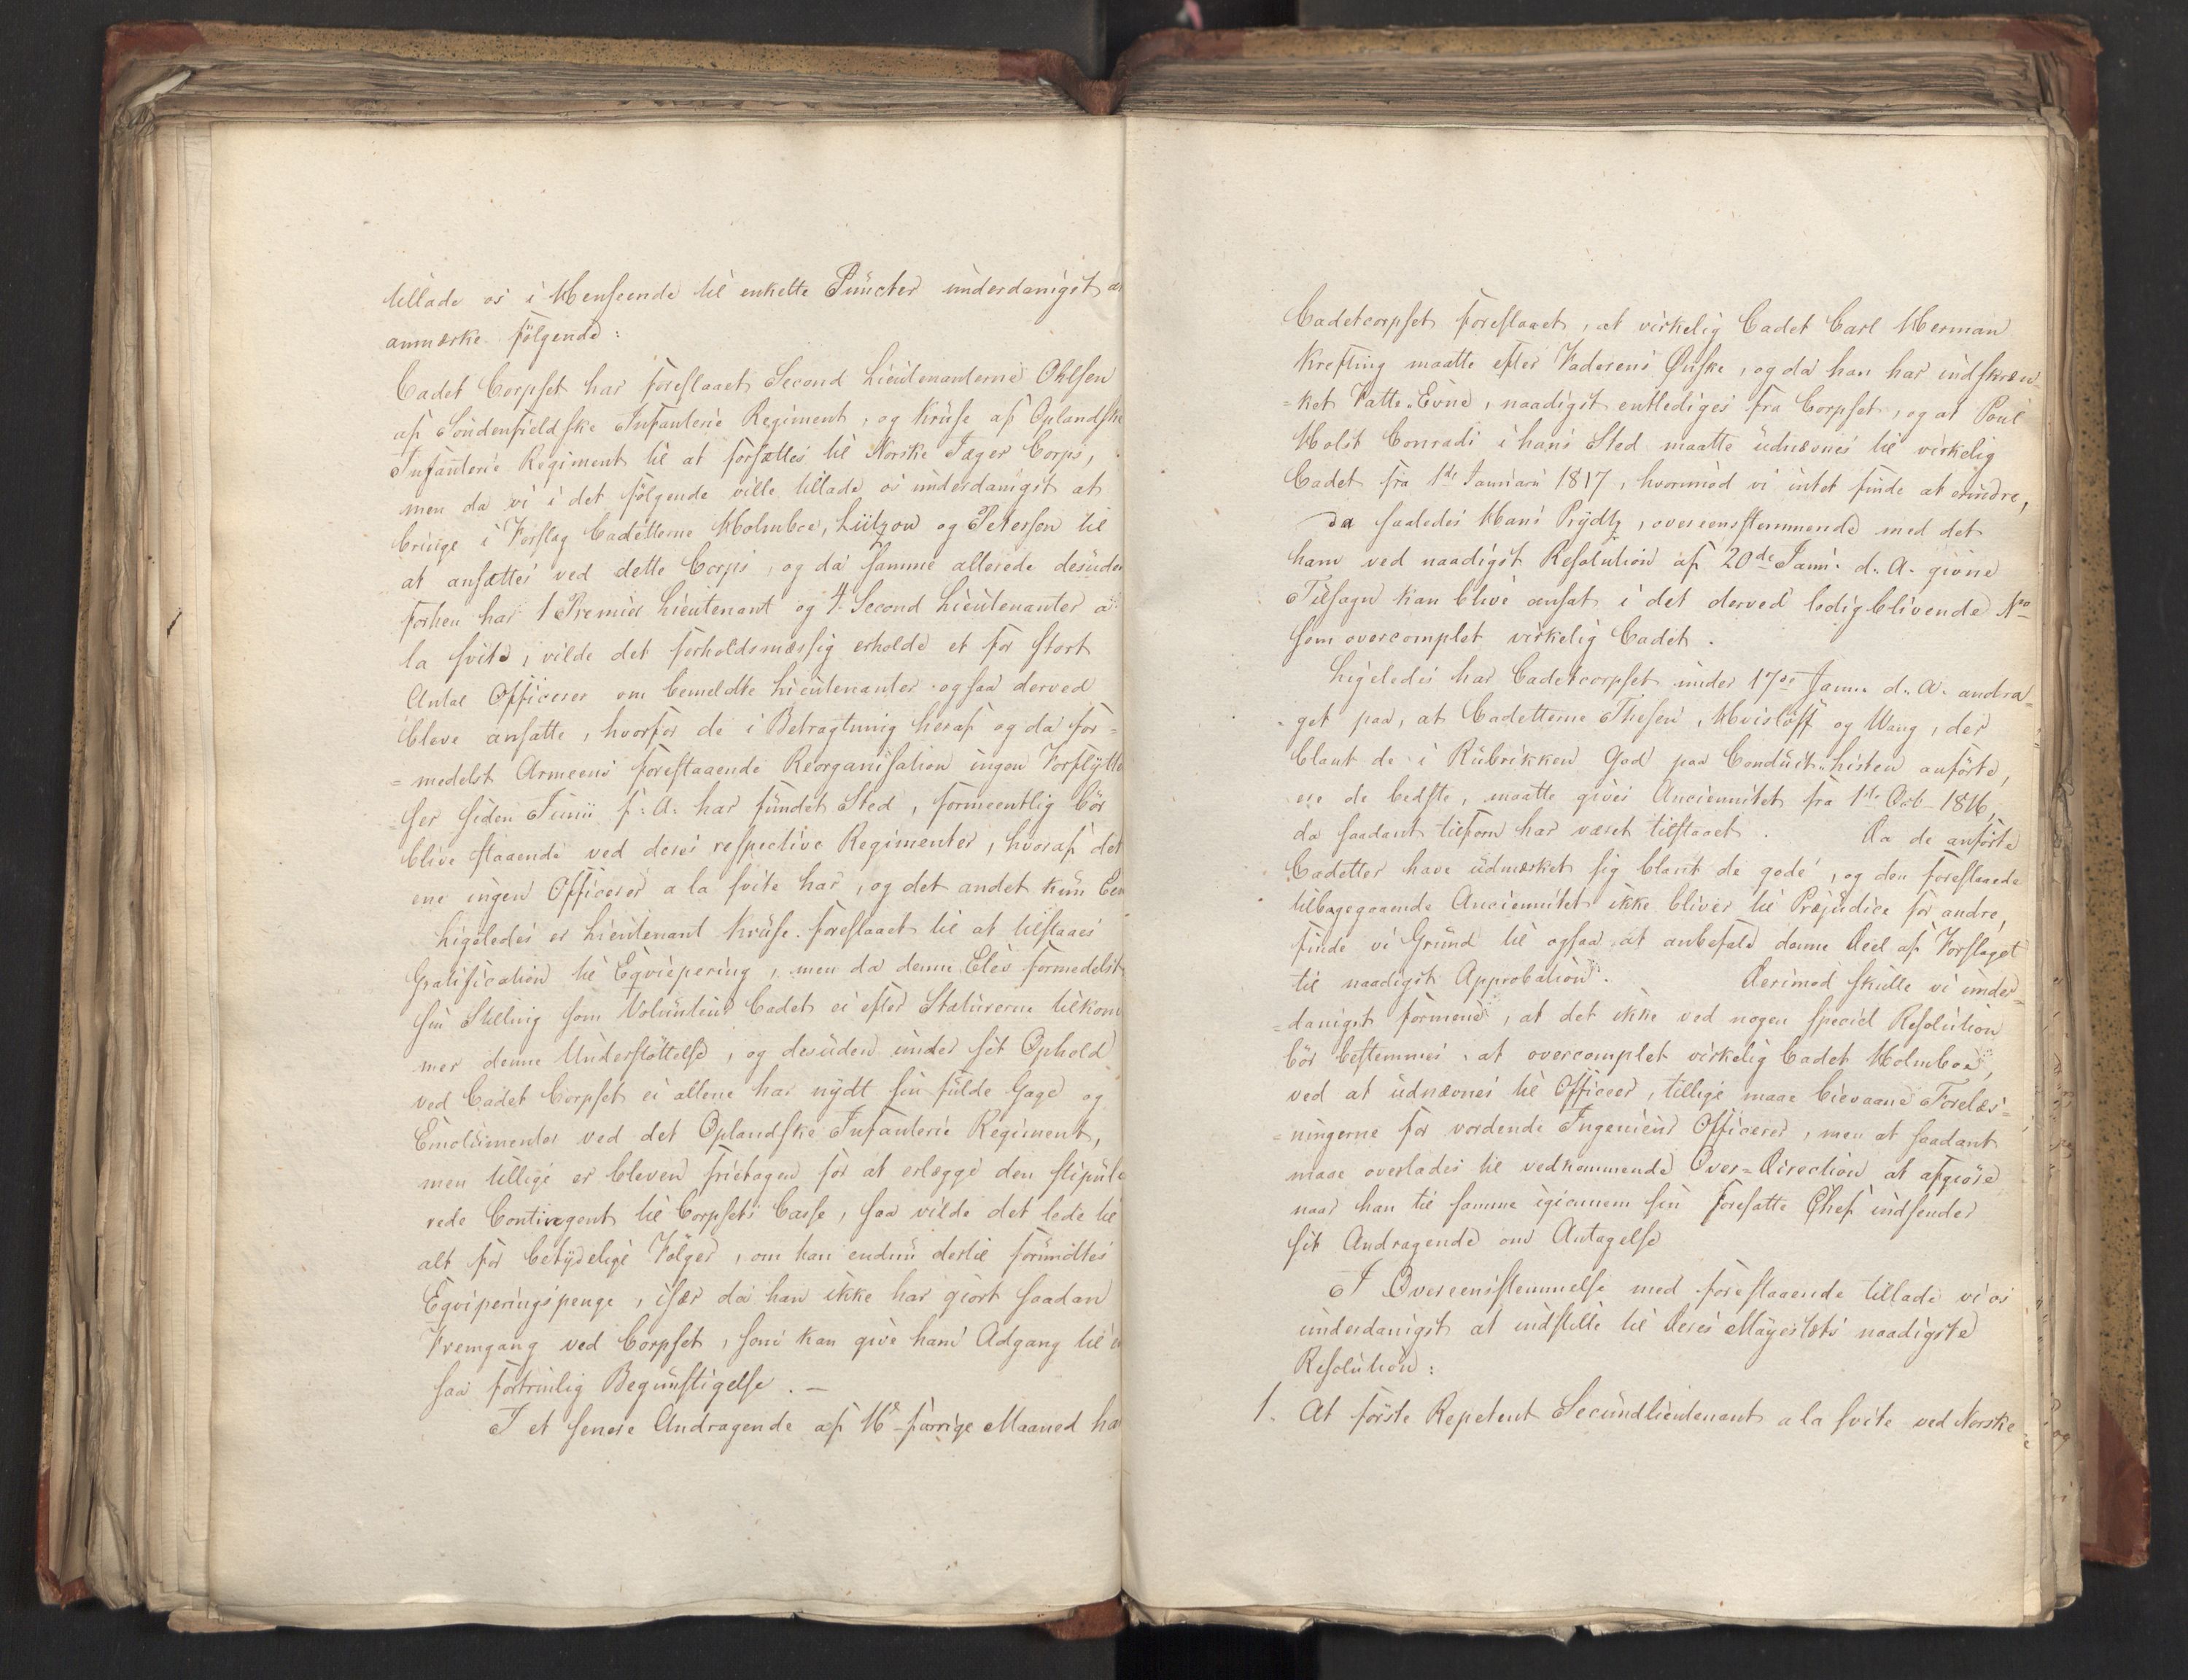 tillade os i Henseende til enkelte Puncter underdanigst at
anmærke følgende:
Cadet Corpset har foreslaaet Second Lieutenanterne Ohlsen
af Söndenfieldske Infanterie Regiment, og Kruse af Oplandske
Infanterie Regiment til at forsættes til Norske Jæger Corps,
men da vi i det følgende ville tillade os underdanigst at
bringe i Forslag Cadetterne Holmboe, Lützow og Petersen til
at ansættes ved dette Corps, og da samme allerede desuden
forhen har 1 Premier Lieutenant og 4 Second Lieutenanter a
la svite, vilde det forholdsmæssig erholde et for stort
Antal Officerer om bemeldte Lieutenanter ogsaa derved
bleve ansatte, hvorfor de i Betragtning heraf og da for-
=medelst Armeens forestaaende Reorganisation ingen Forflyttel
=ser siden Junii f. A. har fundet Sted, formeentlig bör
blive staaende ved deres respective Regimenter, hvoraf det
ene ingen Officerer a la svite har, og det andet kun Een
Ligeledes er Lieutenant Kruse foreslaaet til at tilstaaes
Gratification til Eqviepering, men da denne Elev formedelst
sin Stilling som Volunteur Cadet ei efter Statuterne tilkom
mer denne Understöttelse, og desuden under sit Ophold
ved Cadet Corpset ei allene har nydt sin fulde Gage og
Emolumenter ved det Oplandske Infanterie Regiment,
men tillige er bleven fritagen for at erlægge den stipule
rede Contingent til Corpsets Casse, saa vilde det lede til
alt for betydelige Fölger, om han endnu dertil forundtes
Eqviperingspenge, især da han ikke har giort saadan
Fremgang ved Corpset, som kan give ham Adgang til en
saa fortrinlig Begunstigelse. —
I et senere Andragende af 16de forrige Maaned har
Cadetcorpset foreslaaet, at virkelig Cadet Carl Herman
Krefting maatte efter Faderens Ønske, og da han har indskræn-
=ket Fatte-Evne, naadigst entlediges fra Corpset, og at Poul
Holst Conradi i hans Sted maatte udnævnes til virkelig
Cadet fra 1ste Januarii 1817, hvorimod vi intet finde at erindre,
da saaledes Hans Prydtz, overeensstemmende med det
ham ved naadigst Resolution af 20de Janu. d. A. givne
Tilsagn kan blive ansat i det derved ledigblivende No
som overcomplet virkelig Cadet.
Ligeledes har Cadetcorpset under 17de Janu. d. A. andra-
=get paa, at Cadetterne Thesen, Hvisloff og Wang, der
blant de i Rubrikken God paa Conduit-Listen anförte,
ere de bedste, maatte gives Anciennitet fra 1ste Oct. 1816,
da saadant tilforn har været tilstaaet. Da de anförte
Cadetter have udmærket sig blant de gode, og den foreslaaede
tilbagegaaende Anciennitet ikke bliver til Præjudice for andre,
finde vi Grund til ogsaa at anbefale denne Deel af Forslaget
til naadigst Approbation. Derimod skulle vi under-
=danigst formene, at det ikke ved nogen speciel Resolution
bör bestemmes, at overcomplet virkelig Cadet Holmboe,
ved at udnævnes til Officeer, tillige maae bievaane Forelæs-
=ningerne for vordende Ingenieur Officerer, men at saadant
maae overlades til vedkommende Over-Direction at afgiöre
naar han til samme igiennem sin foresatte Chef indsender
sit Andragende om Antagelse
I Overeensstemmelse med forestaaende tillade vi os
underdanigst at indstille til Deres Mayestæts naadigste
Resolution:
1. At förste Repetent Secundlieutenant a la svite ved Norske